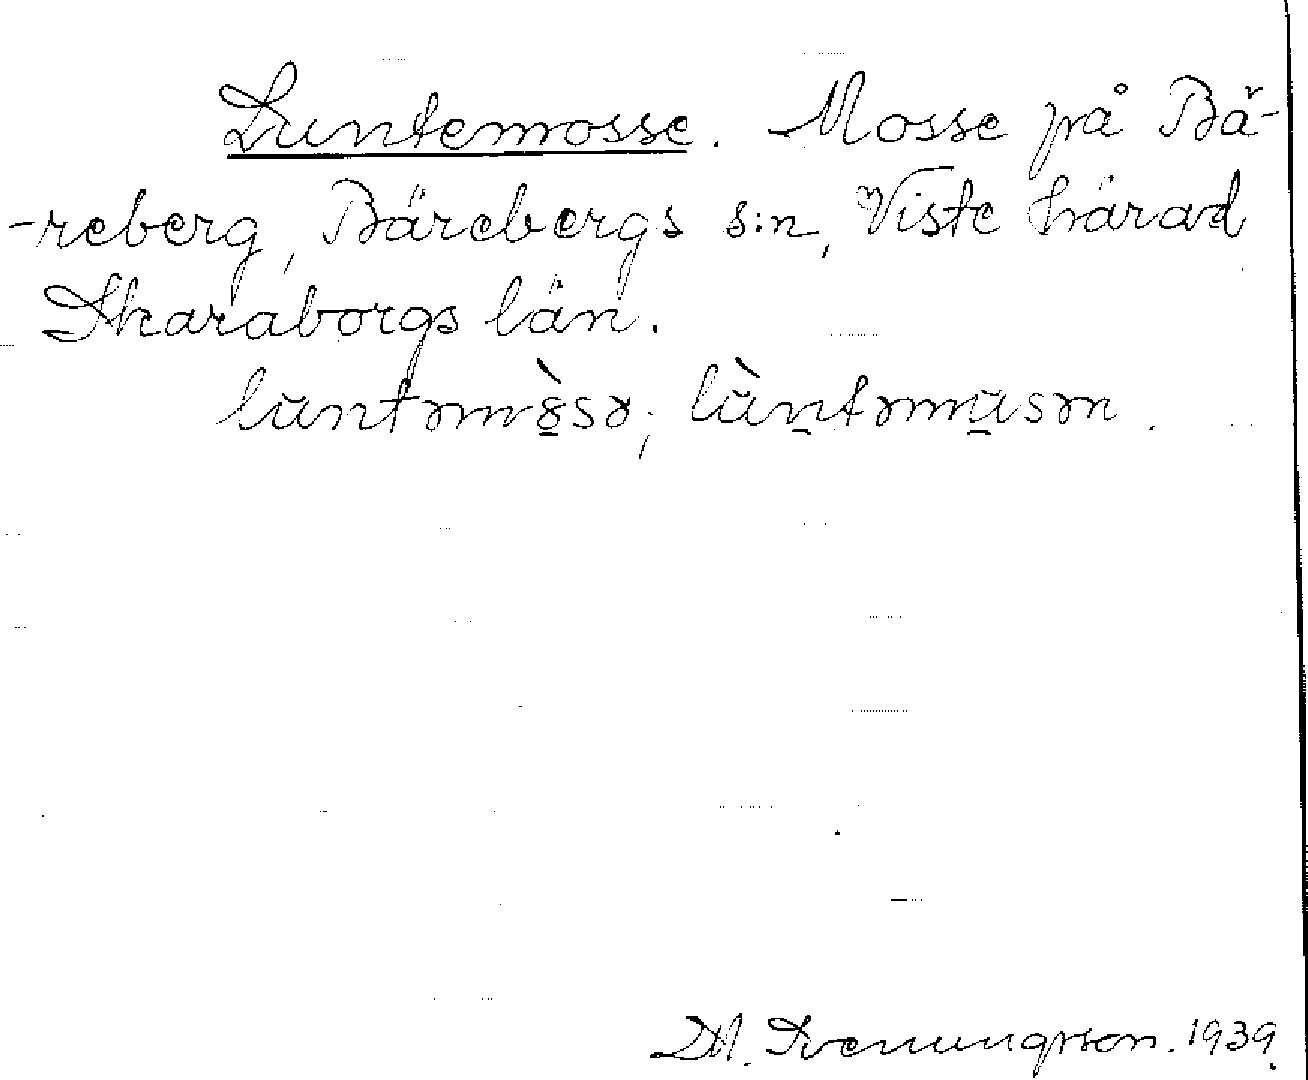 Luntemosse. Mosse på Bä-
-reberg, Bärebergs s:n, Viste härad
Skaraborgs län.
luntəmòsə; lùntəmusən.
Svenungsson. 1939.